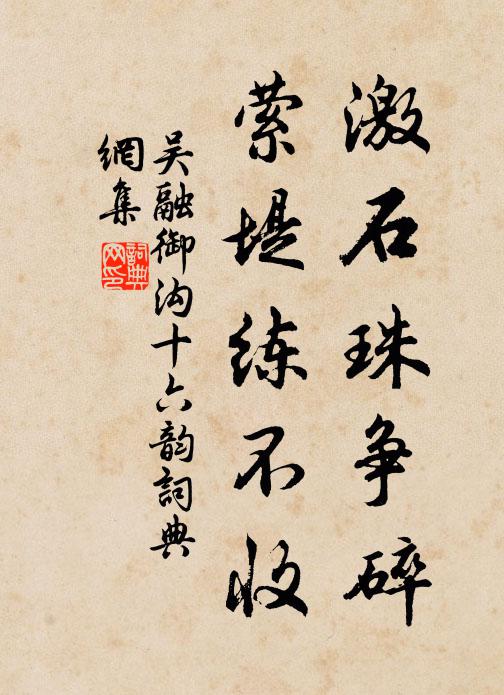 激石珠争碎
萦堤练不收
吴融御沟十六韵詞典
網集
詞典
网印